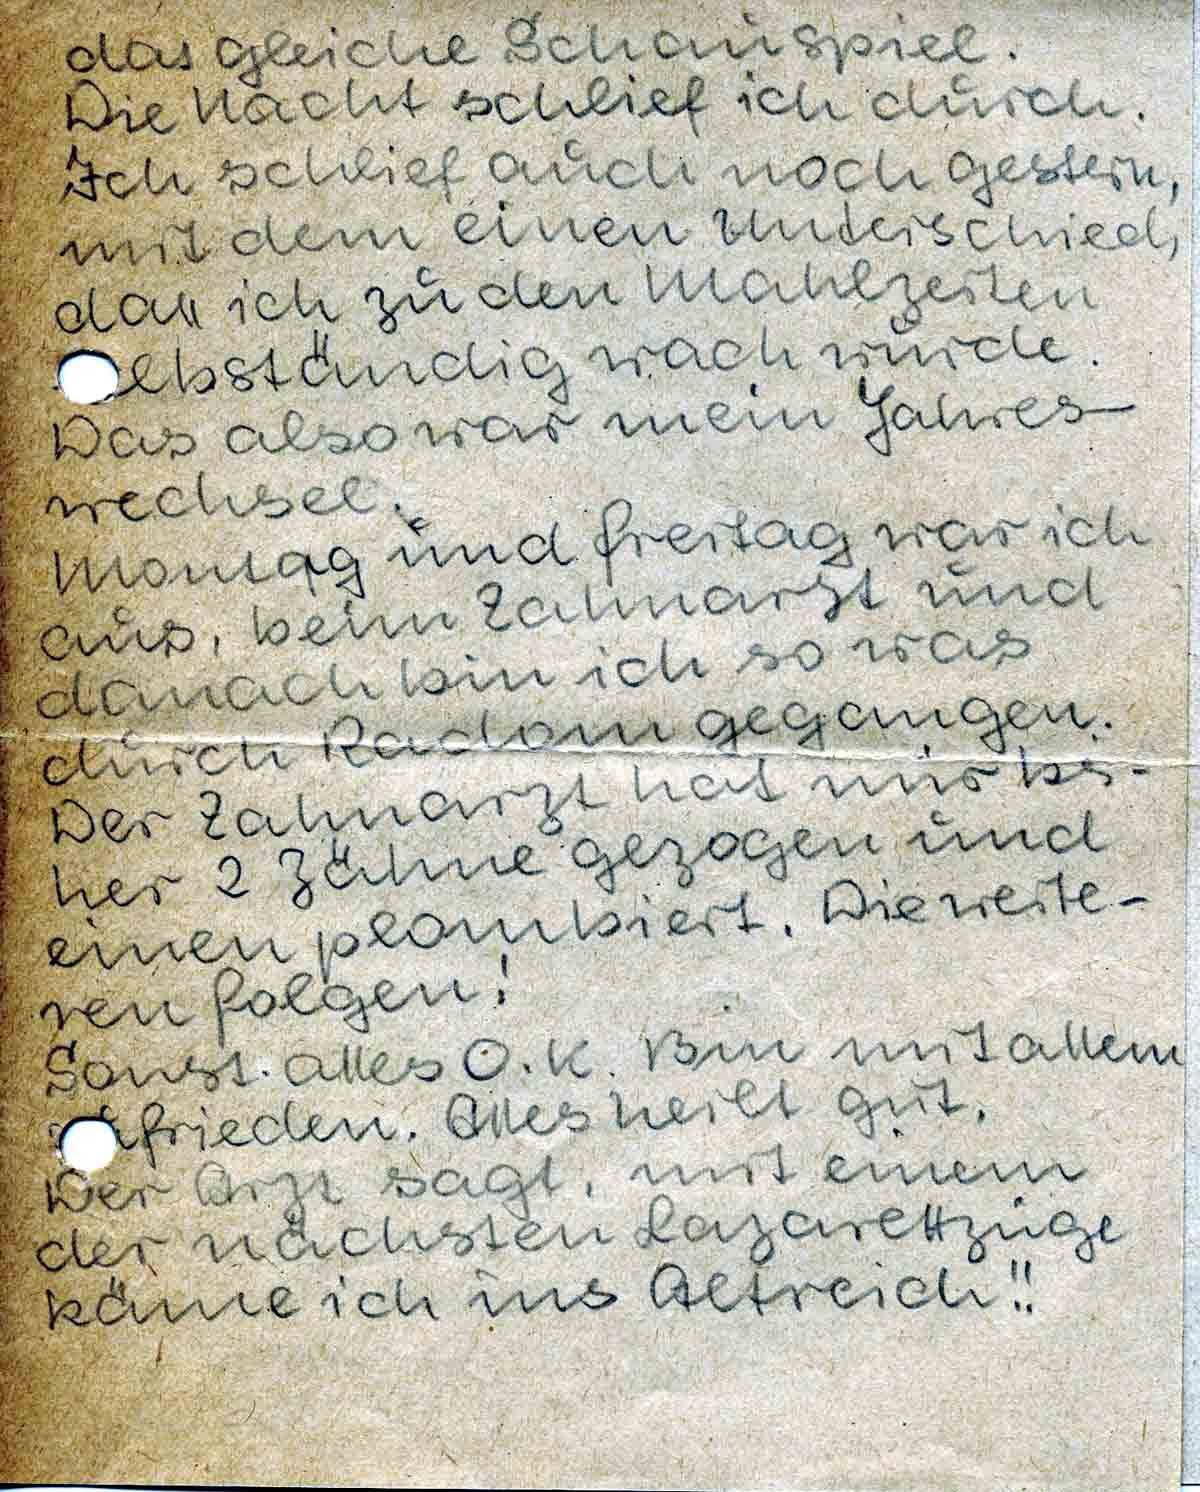 das gleiche Schauspiel.
Die Nacht schlief ich durch.
Ich schlief auch noch gestern,
mit dem einen Unterschied,
daß ich zu den Mahlzeiten
selbständig wach wurde.
Das also war mein Jahres-
wechsel.
Montag und Freitag war ich
aus, beim Zahnarzt und
danach bin ich so was
durch Radom gegangen.
Der Zahnarzt hat mir bis-
her 2 Zähne gezogen und
einen plombiert. Die weite-
ren folgen!
Sonst alles O.K. Bin mit allem
zufrieden. Alles heilt gut.
Der Arzt sagt, mit einem
der nächsten Lazarettzüge
käme ich ins Altreich!!